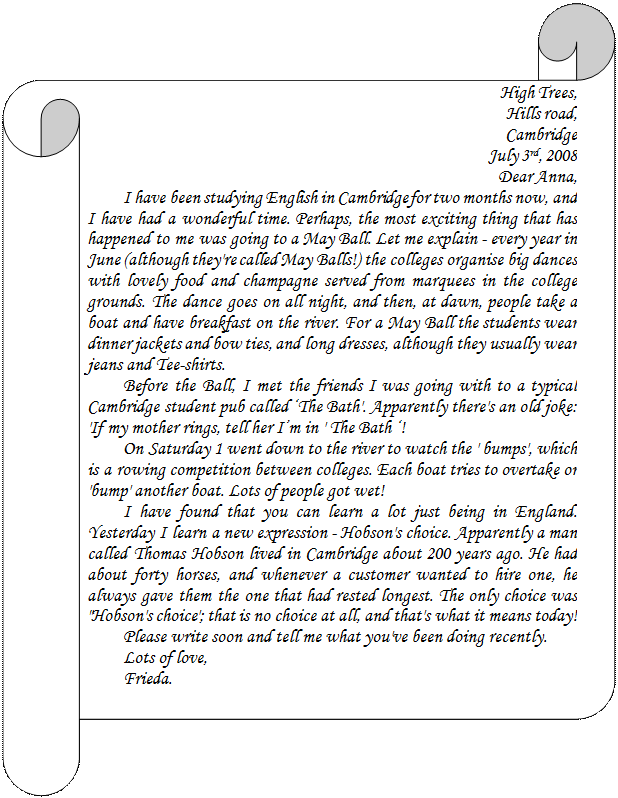 High Trees,
Hills road,
Cambridge
July 3rd, 2008
Dear Anna,
I have been studying English in Cambridge for two months now, and
I have had a wonderful time. Perhaps, the most exciting thing that has
happened to me was going to a May Ball. Let me explain - every year in
June (although they're called May Balls!) the colleges organise big dances
with lovely food and champagne served from marquees in the college
grounds. The dance goes on all night, and then, at dawn, people take a
boat and have breakfast on the river. For a May Ball the students wear
dinner jackets and bow ties, and long dresses, although they usually wear
jeans and Tee-shirts.
Before the Ball, I met the friends I was going with to a typical
Cambridge student pub called ‘The Bath'. Apparently there's an old joke:
'If my mother rings, tell her I´m in ' The Bath ‘!
On Saturday 1 went down to the river to watch the ' bumps', which
is a rowing competition between colleges. Each boat tries to overtake or
'bump' another boat. Lots of people got wet!
I have found that you can learn a lot just being in England.
Yesterday I learn a new expression - Hobson's choice. Apparently a man
called Thomas Hobson lived in Cambridge about 200 years ago. He had
about forty horses, and whenever a customer wanted to hire one, he
always gave them the one that had rested longest. The only choice was
"Hobson's choice'; that is no choice at all, and that's what it means today!
Please write soon and tell me what you've been doing recently.
Lots of love,
Frieda.